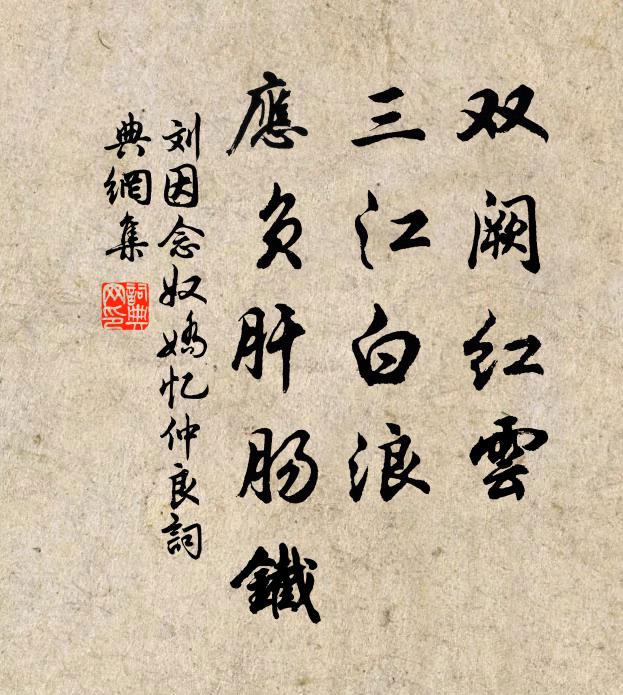 双阙红雲
三江白浪
應负肝肠鐵
刘因念奴娇忆仲良詞
典網集
詞典
网印